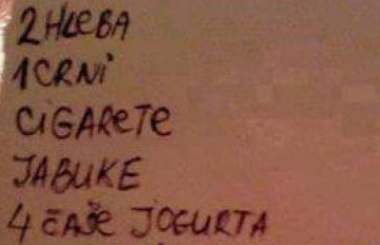 2 HLeBA
1 CRNi
CiGAReTe
JABUKE
4 čAše JOGURTA